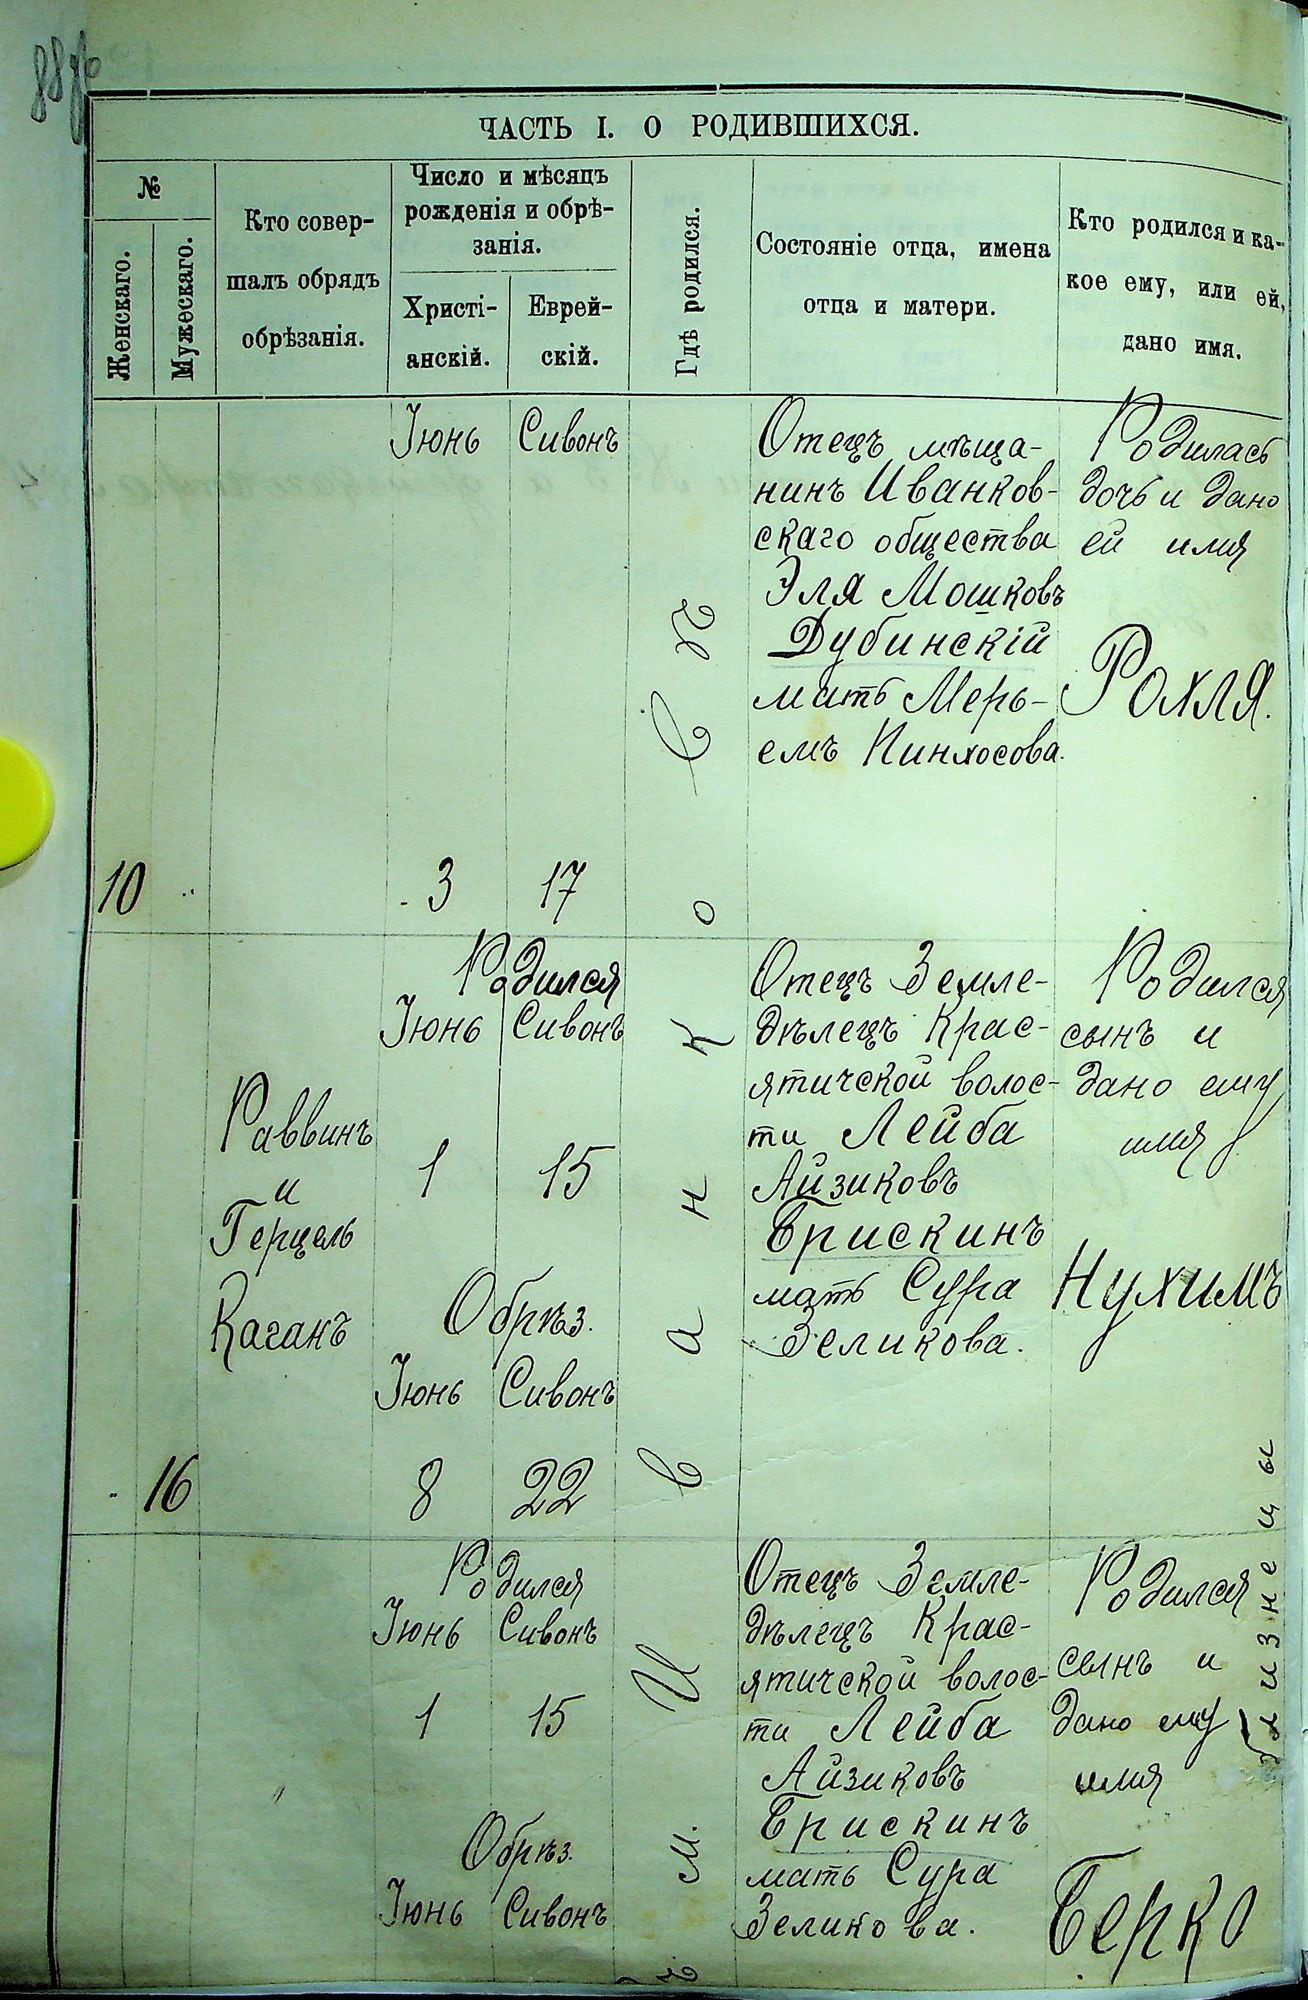 88 об
ЧАСТЬ I. О РОДИВШИХСЯ.
№
Женскаго.
Мужескаго.
Кто совер-
шалъ обрядъ
обрѣзанія.
Число и мѣсяцъ
рожденія и обрѣ-
занія.
Христі-
анскій.
Еврей-
скій.
Гдѣ родился.
Состояніе отца, имена
отца и матери.
Кто родился и ка-
кое ему, или ей,
дано имя.
10
Іюнь Сивонъ
3 17
Отецъ мѣща-
нинъ Иванков-
скаго общества
Эля Мошковъ
Дубинскій
мать Мерь-
емъ Пинхосова.
Родилась
дочь и дано
ей имя
Рохля.
16
Раввинъ
и
Герцель
Каганъ
Родился
Іюнь Сивонъ
1 15
Обрѣз.
Іюнь Сивонъ
8 22
Отецъ Земле-
дѣлецъ Крас-
ятичской волос-
ти Лейба
Айзиковъ
Брискинъ
мать Сура
Зеликова.
Родился
сынъ и
дано ему
имя
Нухимъ
Родился
Іюнь Сивонъ
1 15
Обрѣз.
Іюнь Сивонъ
Отецъ Земле-
дѣлецъ Крас-
ятичской волос-
ти Лейба
Айзиковъ
Брискинъ
мать Сура
Зеликова.
Родился
сынъ и
дано ему
имя
Берко
близнецы
ъ м. Иванковѣ